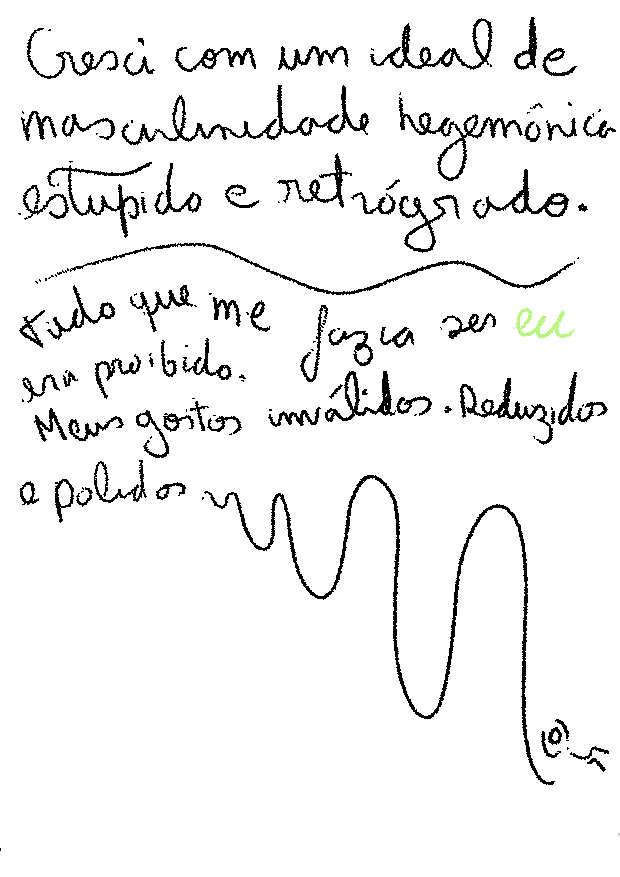 Cresci com um ideal de
masculinidade hegemônica
estúpido e retrógrado.
tudo que me fazia ser eu
era proibido.
Meus gostos inválidos. Reduzidos
e polidos